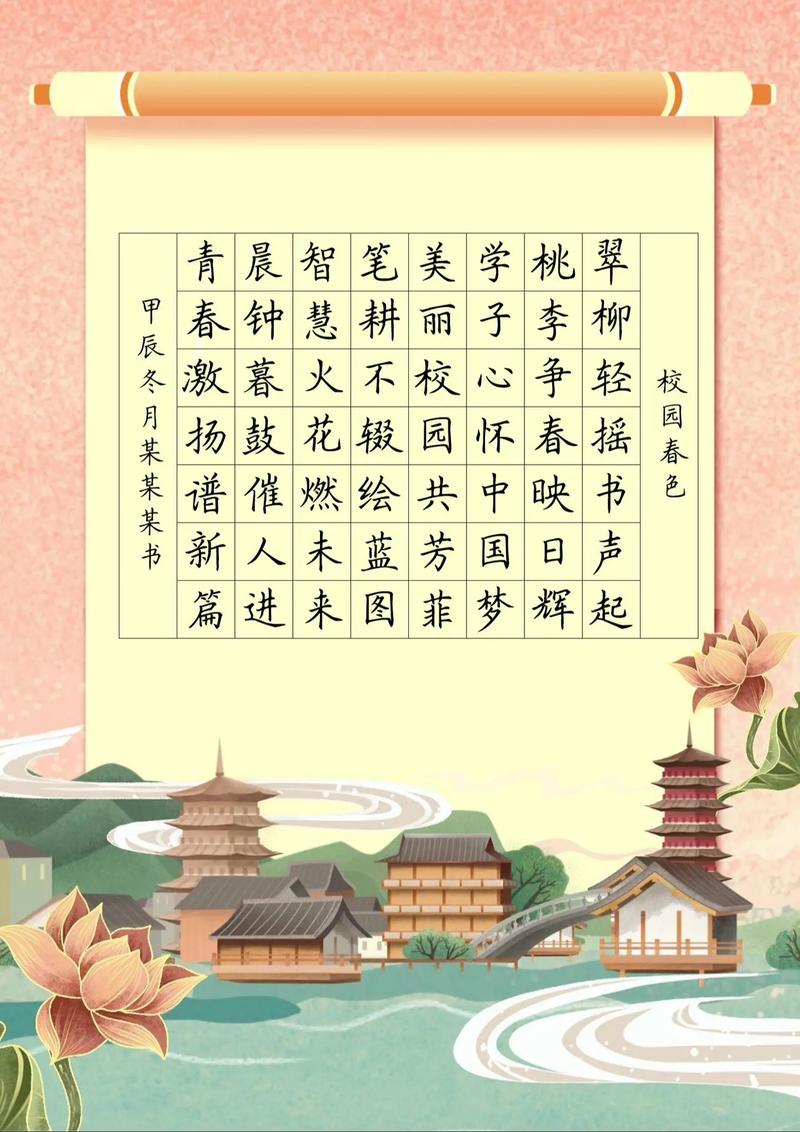 校园春色
翠柳轻摇书声起
桃李争春映日辉
学子心怀中国梦
美丽校园共芳菲
笔耕不辍绘蓝图
智慧火花燃未来
晨钟暮鼓催人进
青春激扬谱新篇
甲辰冬月某某某书